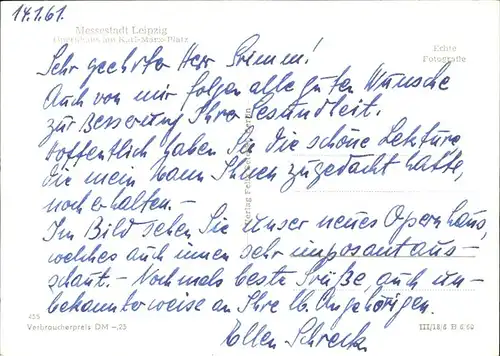 14.1.61.
Messestadt Leipzig
Opernhaus am Karl-Marx-Platz
Echte
Fotografie
Sehr geehrter Herr Grimm!
Auch von mir folgen alle guten Wünsche
zur Besserung Ihrer Gesundheit.
Hoffentlich haben Sie die schöne Lektüre,
die mein Mann Ihnen zugedacht hatte,
noch erhalten. –
Im Bild sehen Sie unser neues Opernhaus,
welches auch innen sehr imposant aus-
schaut. – Nochmals beste Grüße, auch un-
bekannterweise an Ihre lb. Angehörigen.
Ellen Schreck
455
Verbraucherpreis DM –,25
III/18/6 B 6/60